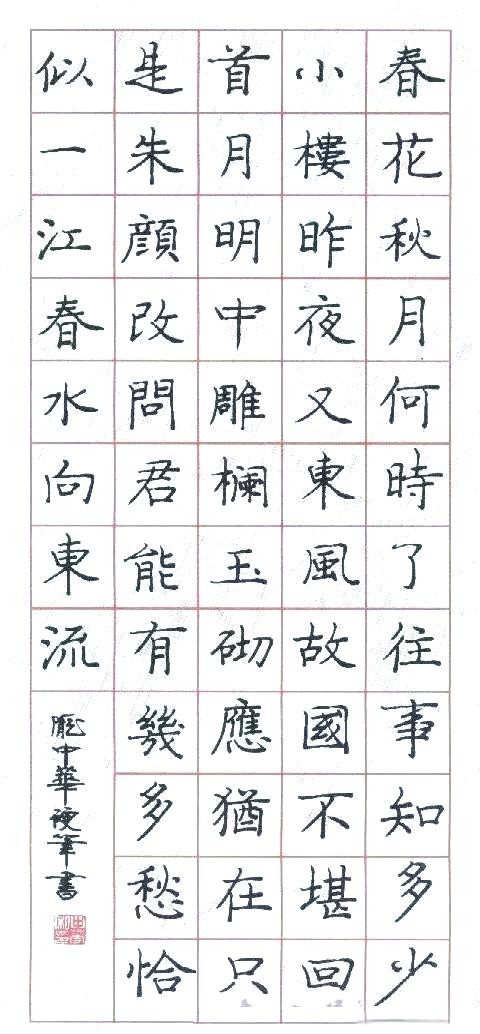 春花秋月何時了往事知多少
小樓昨夜又東風故國不堪回
首月明中雕欄玉砌應猶在只
是朱顏改問君能有幾多愁恰
似一江春水向東流
龐中華硬筆書